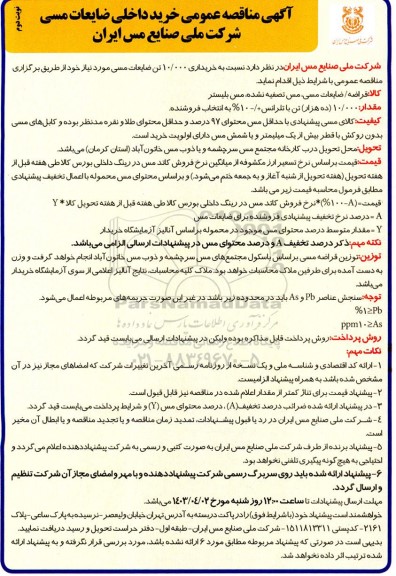 نوبت دوم
آگهی مناقصه عمومی خرید داخلی ضایعات مسی
شرکت ملی صنایع مس ایران
شرکت ملی صنایع مس ایران در نظر دارد نسبت به خریداری ۱۰/۰۰۰ تن ضایعات مسی مورد نیاز خود از طریق برگزاری
مناقصه عمومی با شرایط ذیل اقدام نماید.
کالا: قراضه/ ضایعات مسی، مس تصفیه نشده، مس بلیستر
مقدار: ۱۰/۰۰۰ (ده هزار) تن با تلرانس ۱۰٪-/+ به انتخاب فروشنده.
کیفیت: کالای مسی پیشنهادی با حداقل مس محتوای ۹۷ درصد و حداقل محتوای طلا و نقره مدنظر بوده و کابل‌های مسی
بدون روکش با قطر بیش از یک میلیمتر و یا شمش مس دارای اولویت خرید است.
تحویل: محل تحویل درب کارخانه مجتمع مس سرچشمه و یا ذوب مس خاتون‌آباد (استان کرمان) می‌باشد.
قیمت: قیمت براساس نرخ تسعیر ارز مکشوفه از میانگین نرخ فروش کاتد مس در رینگ داخلی بورس کالا طی هفته قبل از
هفته تحویل (هفته تحویل از شنبه آغاز و به جمعه ختم می‌شود.) و براساس محتوای مس محموله با اعمال تخفیف پیشنهادی
مطابق فرمول محاسبه قیمت زیر می باشد.
قیمت=(۱۰۰%-A)*نرخ فروش کاتد مس در رینگ داخلی بورس کالا طی هفته قبل از هفته تحویل کالا * Y
A = درصد نرخ تخفیف پیشنهادی فروشنده برای ضایعات مس
Y = مقدار متوسط درصد محتوای مس موجود در محموله بر اساس آنالیز آزمایشگاه خریدار
نکته مهم: ذکر درصد تخفیف A و درصد محتوای مس در پیشنهادات ارسالی الزامی می‌باشد.
توزین: توزین قراضه مسی براساس باسکول مجتمع‌های مس سرچشمه و ذوب مس خاتون آباد انجام خواهد گرفت و وزن
به دست آمده برای طرفین ملاک محاسبات خواهد بود. ملاک کلیه محاسبات، نتایج آنالیز اعلامی از سوی آزمایشگاه خریدار
می‌باشد.
توجه: سنجش عناصر Pb و As باید در محدوده زیر باشد در غیر این صورت جریمه‌های مربوطه اعمال می‌شود.
%۱≥Pb
ppm۱۰≥As
ParsNamadData
۰۲۱-۸۸۳۴۹۶۷۰-۵
روش پرداخت: روش پرداخت قابل مذاکره بوده ولیکن در پیشنهادات ارسالی می‌بایست قید گردد.
نکات مهم:
۱- ارائه کد اقتصادی و شناسه ملی و یک نسخه از روزنامه رسمی آخرین تغییرات شرکت که امضاهای مجاز نیز در آن
مشخص شده باشد به همراه پیشنهاد الزامیست.
۲- پیشنهاد قیمت برای تناژ کمتر از مقدار اعلام شده در مناقصه نیز قابل قبول است.
۳- در پیشنهاد ارائه شده ضرائب درصد تخفیف(A)، درصد محتوای مس (Y) و شرایط پرداخت می‌بایست قید گردد.
۴- شرکت ملی صنایع مس ایران در رد یا قبول پیشنهادات، تمدید زمان مناقصه و یا تجدید مناقصه و یا ابطال آن مخیر
است.
۵- پیشنهاد برنده از طرف شرکت ملی صنایع مس ایران به صورت کتبی و رسمی به شرکت پیشنهاددهنده اعلام می‌گردد و
لذا هیچ گونه پیگیری تلفنی نخواهد بود.
۶- پیشنهاد ارائه شده باید روی سربرگ رسمی شرکت پیشنهاددهنده و با مهر و امضای مجاز آن شرکت تنظیم
و ارسال گردد.
مهلت ارسال پیشنهادات تا ساعت ۱۲:۰۰ روز شنبه مورخ ۱۴۰۳/۰۴/۰۲ می‌باشد.
خواهشمند است پیشنهاد خود (با شرایط فوق) را در پاکت دربسته به آدرس تهران، خیابان ولیعصر -نرسیده به پارک ساعی- پلاک
۲۱۶۱- کدپستی ۱۵۱۱۸۱۳۳۱۱ - شرکت ملی صنایع مس ایران- طبقه اول- دفتر حراست تحویل و رسید دریافت نمایید.
بدیهی است در صورتی که پیشنهاد مربوطه مطابق مورد ۶ ارائه نشده باشد، مورد بررسی قرار نگرفته و به پیشنهاد ارائه
شده ترتیب اثر داده نخواهد شد.